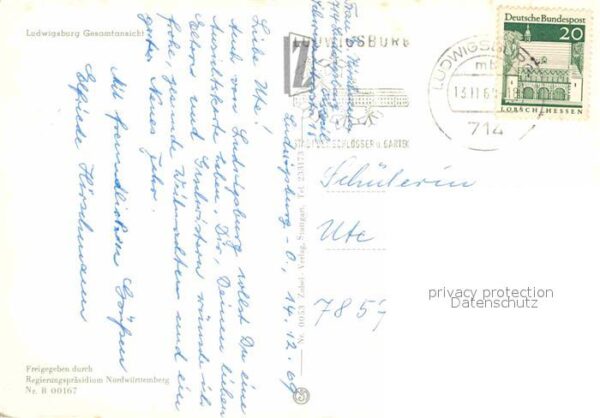 Ludwigsburg Gesamtansicht
Ludwigsburg-O., 14.12.69
Liebe Ute!
Auch von Ludwigsburg sollst Du eine
Ansichtskarte haben. Dir, Deinen lieben
Eltern und Geschwistern wünsche ich
frohe, gesunde Weihnachten und ein
gutes Neues Jahr.
Mit freundlichen Grüßen
Elfriede Hirschmann
Freigegeben durch
Regierungspräsidium Nordwürttemberg
Nr. B 00167
Nr. 0053 Zobel-Verlag, Stuttgart, Tel. 233173
Frau
LUDWIGSBURG
SCHLÖSSER U. GÄRTEN
LUDWIGSBURG
714
Deutsche Bundespost
20
LORSCH/HESSEN
Schülerin
Ute
7857
privacy protection
Datenschutz